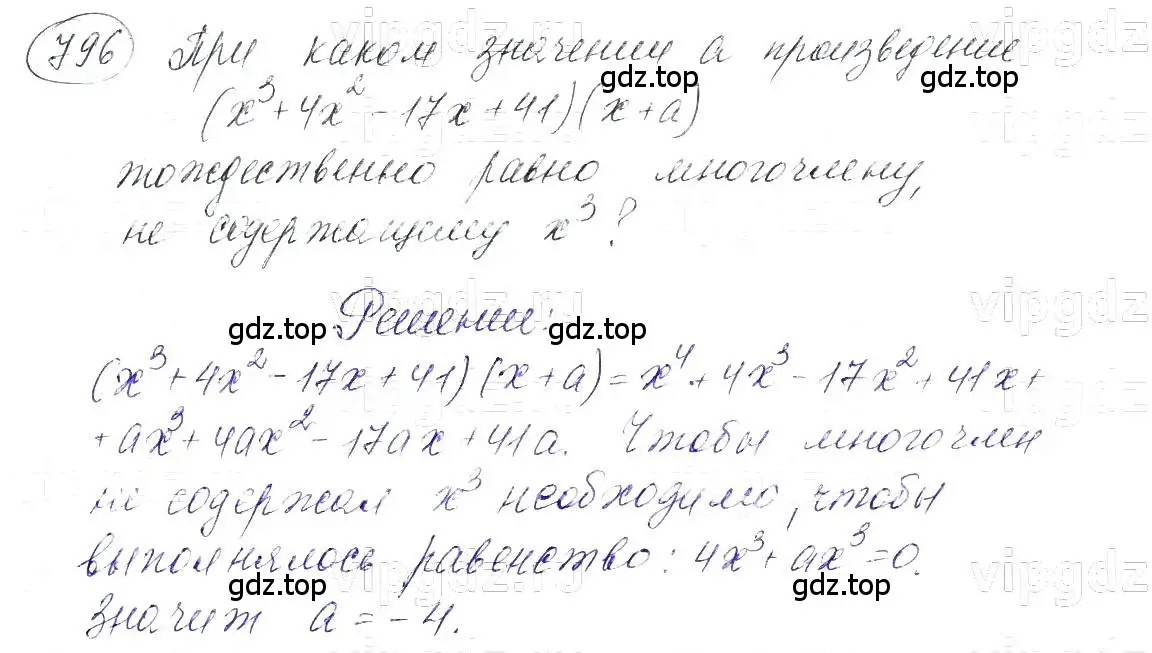 796 При каком значении a произведение
gdz.top
(x³+4x²-17x+41)(x+a)
gdz.top
тождественно равно многочлену,
не содержащему x³?
vipgdz.ru
vipgdz
Решении:
gdz.top
gdz.top
(x³+4x²-17x+41)(x+a)=x⁴+4x³-17x²+41x+
+ax³+4ax²-17ax+41a. Чтобы многочлен
не содержал x³ необходимо, чтобы
выполнялось равенство: 4x³+ax³=0.
gdz.top
gdz.top
vipgdz
Значит a=-4.